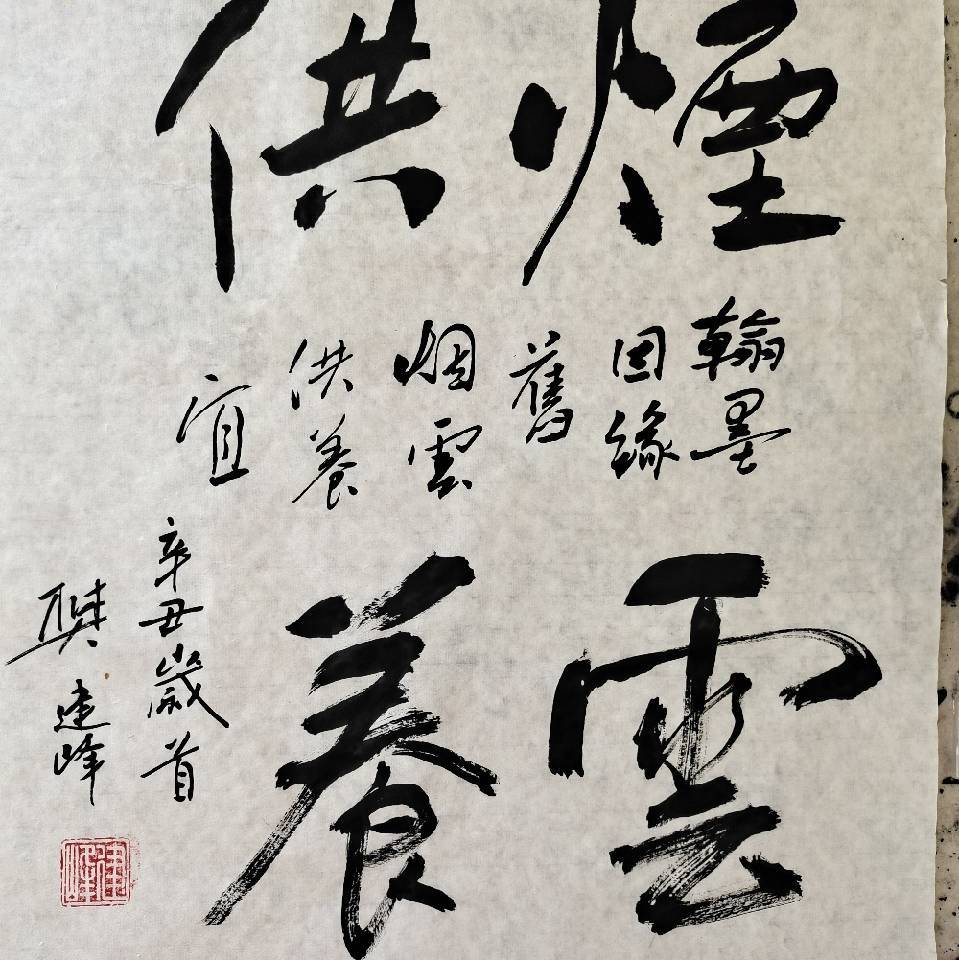 煙雲
供養
翰墨
因緣
舊
烟雲
供養
宜
辛丑歲首
樊建峰
建峰